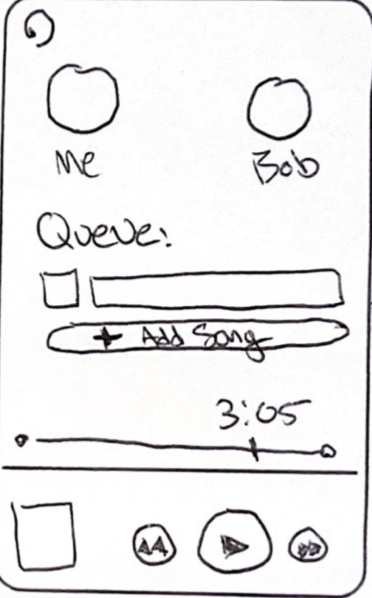 Me Bob
Queue:
+ Add Song
3:05